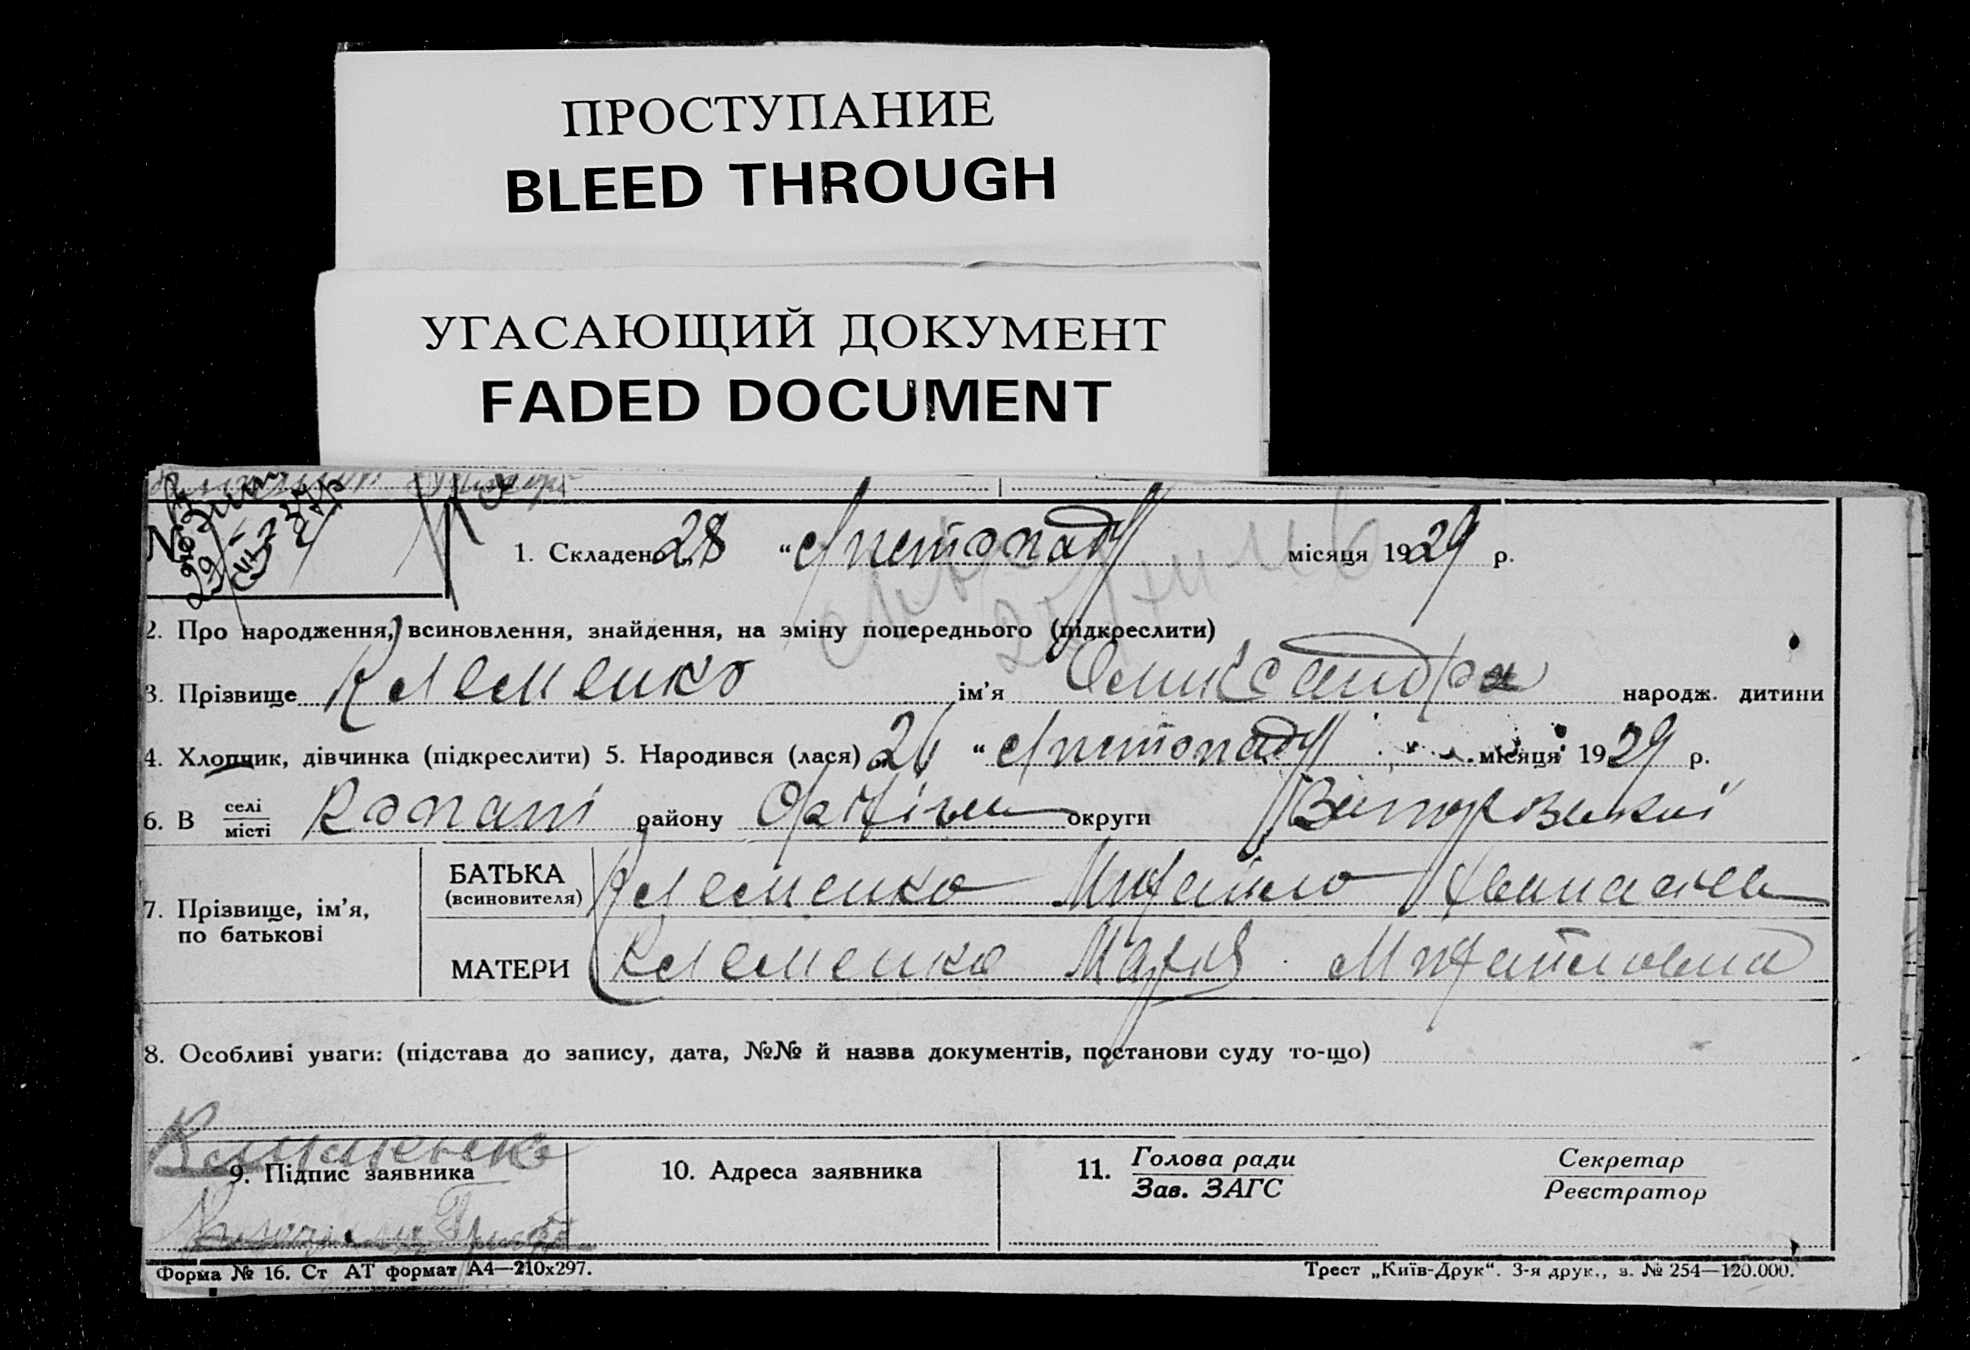 ПРОСТУПАНИЕ
BLEED THROUGH
УГАСАЮЩИЙ ДОКУМЕНТ
FADED DOCUMENT
№
1. Складено 28 “ Листопаду місяця 1929 р.
2. Про народження, всиновлення, знайдення, на зміну попереднього (підкреслити)
3. Прізвище Клеменко ім’я народж. дитини
4. Хлопчик, дівчинка (підкреслити) 5. Народився (лася) 26 “ Листопаду місяця 1929 р.
6. В селі Копані району Оріхівськ округи
місті
7. Прізвище, ім’я, по батькові
БАТЬКА Клеменко Михайло
(всиновителя)
МАТЕРИ Клеменко Марія Михайловна
8. Особливі уваги: (підстава до запису, дата, №№ й назва документів, постанови суду то-що)
9. Підпис заявника 10. Адреса заявника 11. Голова ради Секретар
Зав. ЗАГС Реєстратор
Форма № 16. Ст АТ формат А4—210х297. Трест „Київ-Друк“. 3-я друк., з. № 254—120.000.